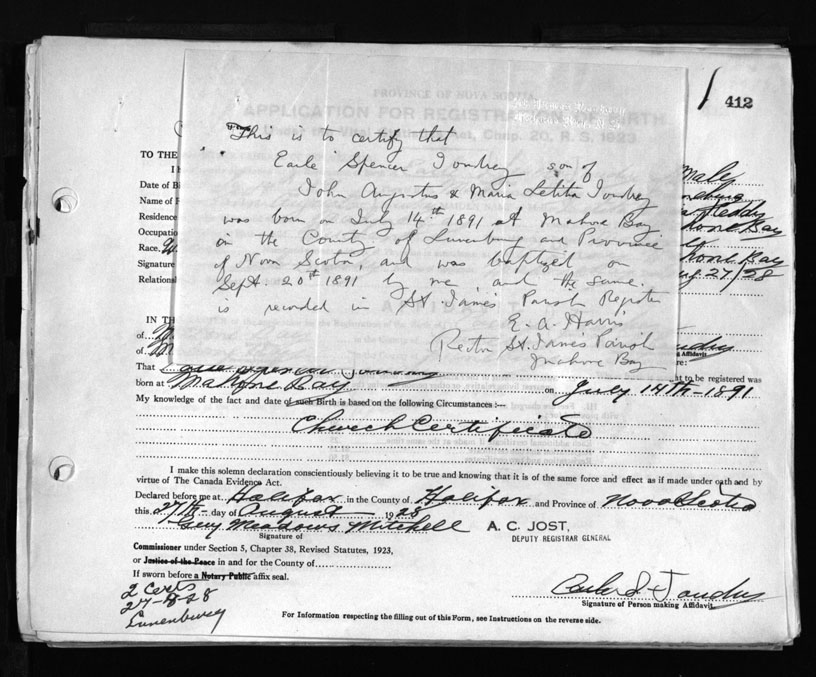 412
PROVINCE OF NOVA SCOTIA
APPLICATION FOR REGISTRATION OF BIRTH
Chap. 20, R. S. 1923
This is to certify that
Earle Spencer Joudrey son of
John Augustus & Maria Letitia Joudrey
was born on July 14th 1891 at Mahone Bay
in the County of Lunenburg and Province
of Nova Scotia, and was baptized on
Sept. 20th 1891 by me, and the same
is recorded in St. James Parish Register
E. A. Harris
Rector St. James Parish
Mahone Bay
TO THE
Male
Date of Bi
Name of F
Residence
hone Bay
Occupatio
Race. W
hone Bay
Signature
Aug. 27/28
Relation
IN TH
of
of
Affidavit
That Earle Spencer Joudrey at to be registered was
born at Mahone Bay on July 14th-1891
My knowledge of the fact and date of such Birth is based on the following Circumstances :—
Church Certificate
I make this solemn declaration conscientiously believing it to be true and knowing that it is of the same force and effect as if made under oath and by
virtue of The Canada Evidence Act.
Declared before me at Halifax in the County of Halifax and Province of Nova Scotia
this 27th day of August 1928
Guy Meadows Mitchell
Signature of
A. C. JOST,
DEPUTY REGISTRAR GENERAL
Commissioner under Section 5, Chapter 38, Revised Statutes, 1923,
or Justice of the Peace in and for the County of
If sworn before a Notary Public affix seal.
2 Certs
27-8-28
Lunenburg
Earle S. Joudrey
Signature of Person making Affidavit
For Information respecting the filling out of this Form, see Instructions on the reverse side.